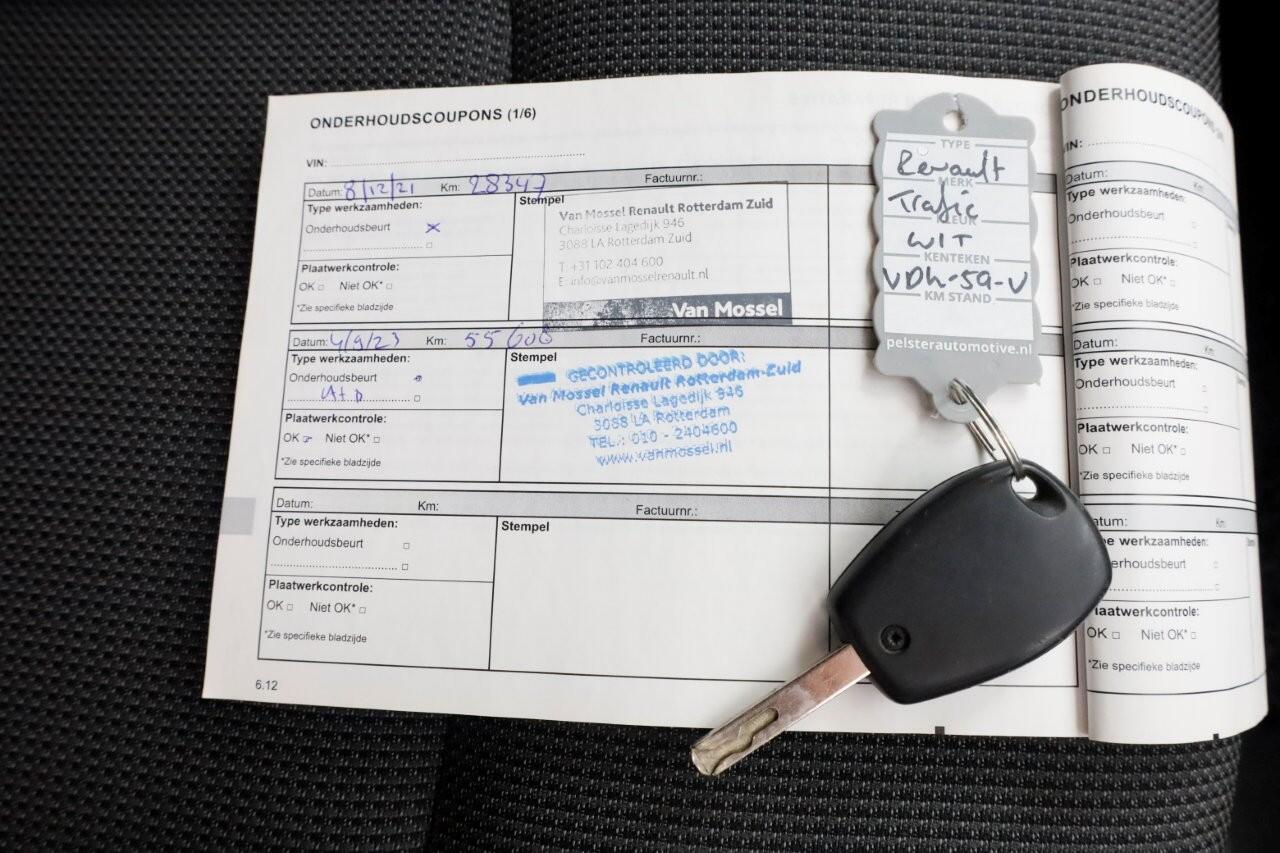 ONDERHOUDSCOUPONS (1/6)
VIN:
Datum: 8/12/21 Km: 28347 Factuurnr.:
Type werkzaamheden:
Onderhoudsbeurt
Plaatwerkcontrole:
OK Niet OK*
*Zie specifieke bladzijde
Stempel
Van Mossel Renault Rotterdam Zuid
Charloisse Lagedijk 946
3088 LA Rotterdam Zuid
T: +31 102 404 600
E: info@vanmosselrenault.nl
Van Mossel
Datum: 4/9/23 Km: 55600 Factuurnr.:
Type werkzaamheden:
Onderhoudsbeurt
Plaatwerkcontrole:
OK Niet OK*
*Zie specifieke bladzijde
Stempel
GECONTROLEERD DOOR:
Van Mossel Renault Rotterdam-Zuid
Charloisse Lagedijk 946
3088 LA Rotterdam
TEL.: 010 - 2404600
www.vanmossel.nl
Datum: Km: Factuurnr.:
Type werkzaamheden:
Onderhoudsbeurt
Plaatwerkcontrole:
OK Niet OK*
*Zie specifieke bladzijde
Stempel
6.12
TYPE
Renault
MERK
Trafic
KLEUR
WIT
KENTEKEN
VDH-59-V
KM STAND
pelsterautomotive.nl
ONDERHOUDSCOUPONS
VIN:
Datum: Km:
Type werkzaamheden:
Onderhoudsbeurt
Plaatwerkcontrole:
OK Niet OK*
*Zie specifieke bladzijde
Datum: Km:
Type werkzaamheden:
Onderhoudsbeurt
Plaatwerkcontrole:
OK Niet OK*
*Zie specifieke bladzijde
Datum: Km:
werkzaamheden:
Onderhoudsbeurt
Plaatwerkcontrole:
OK Niet OK*
*Zie specifieke bladzijde